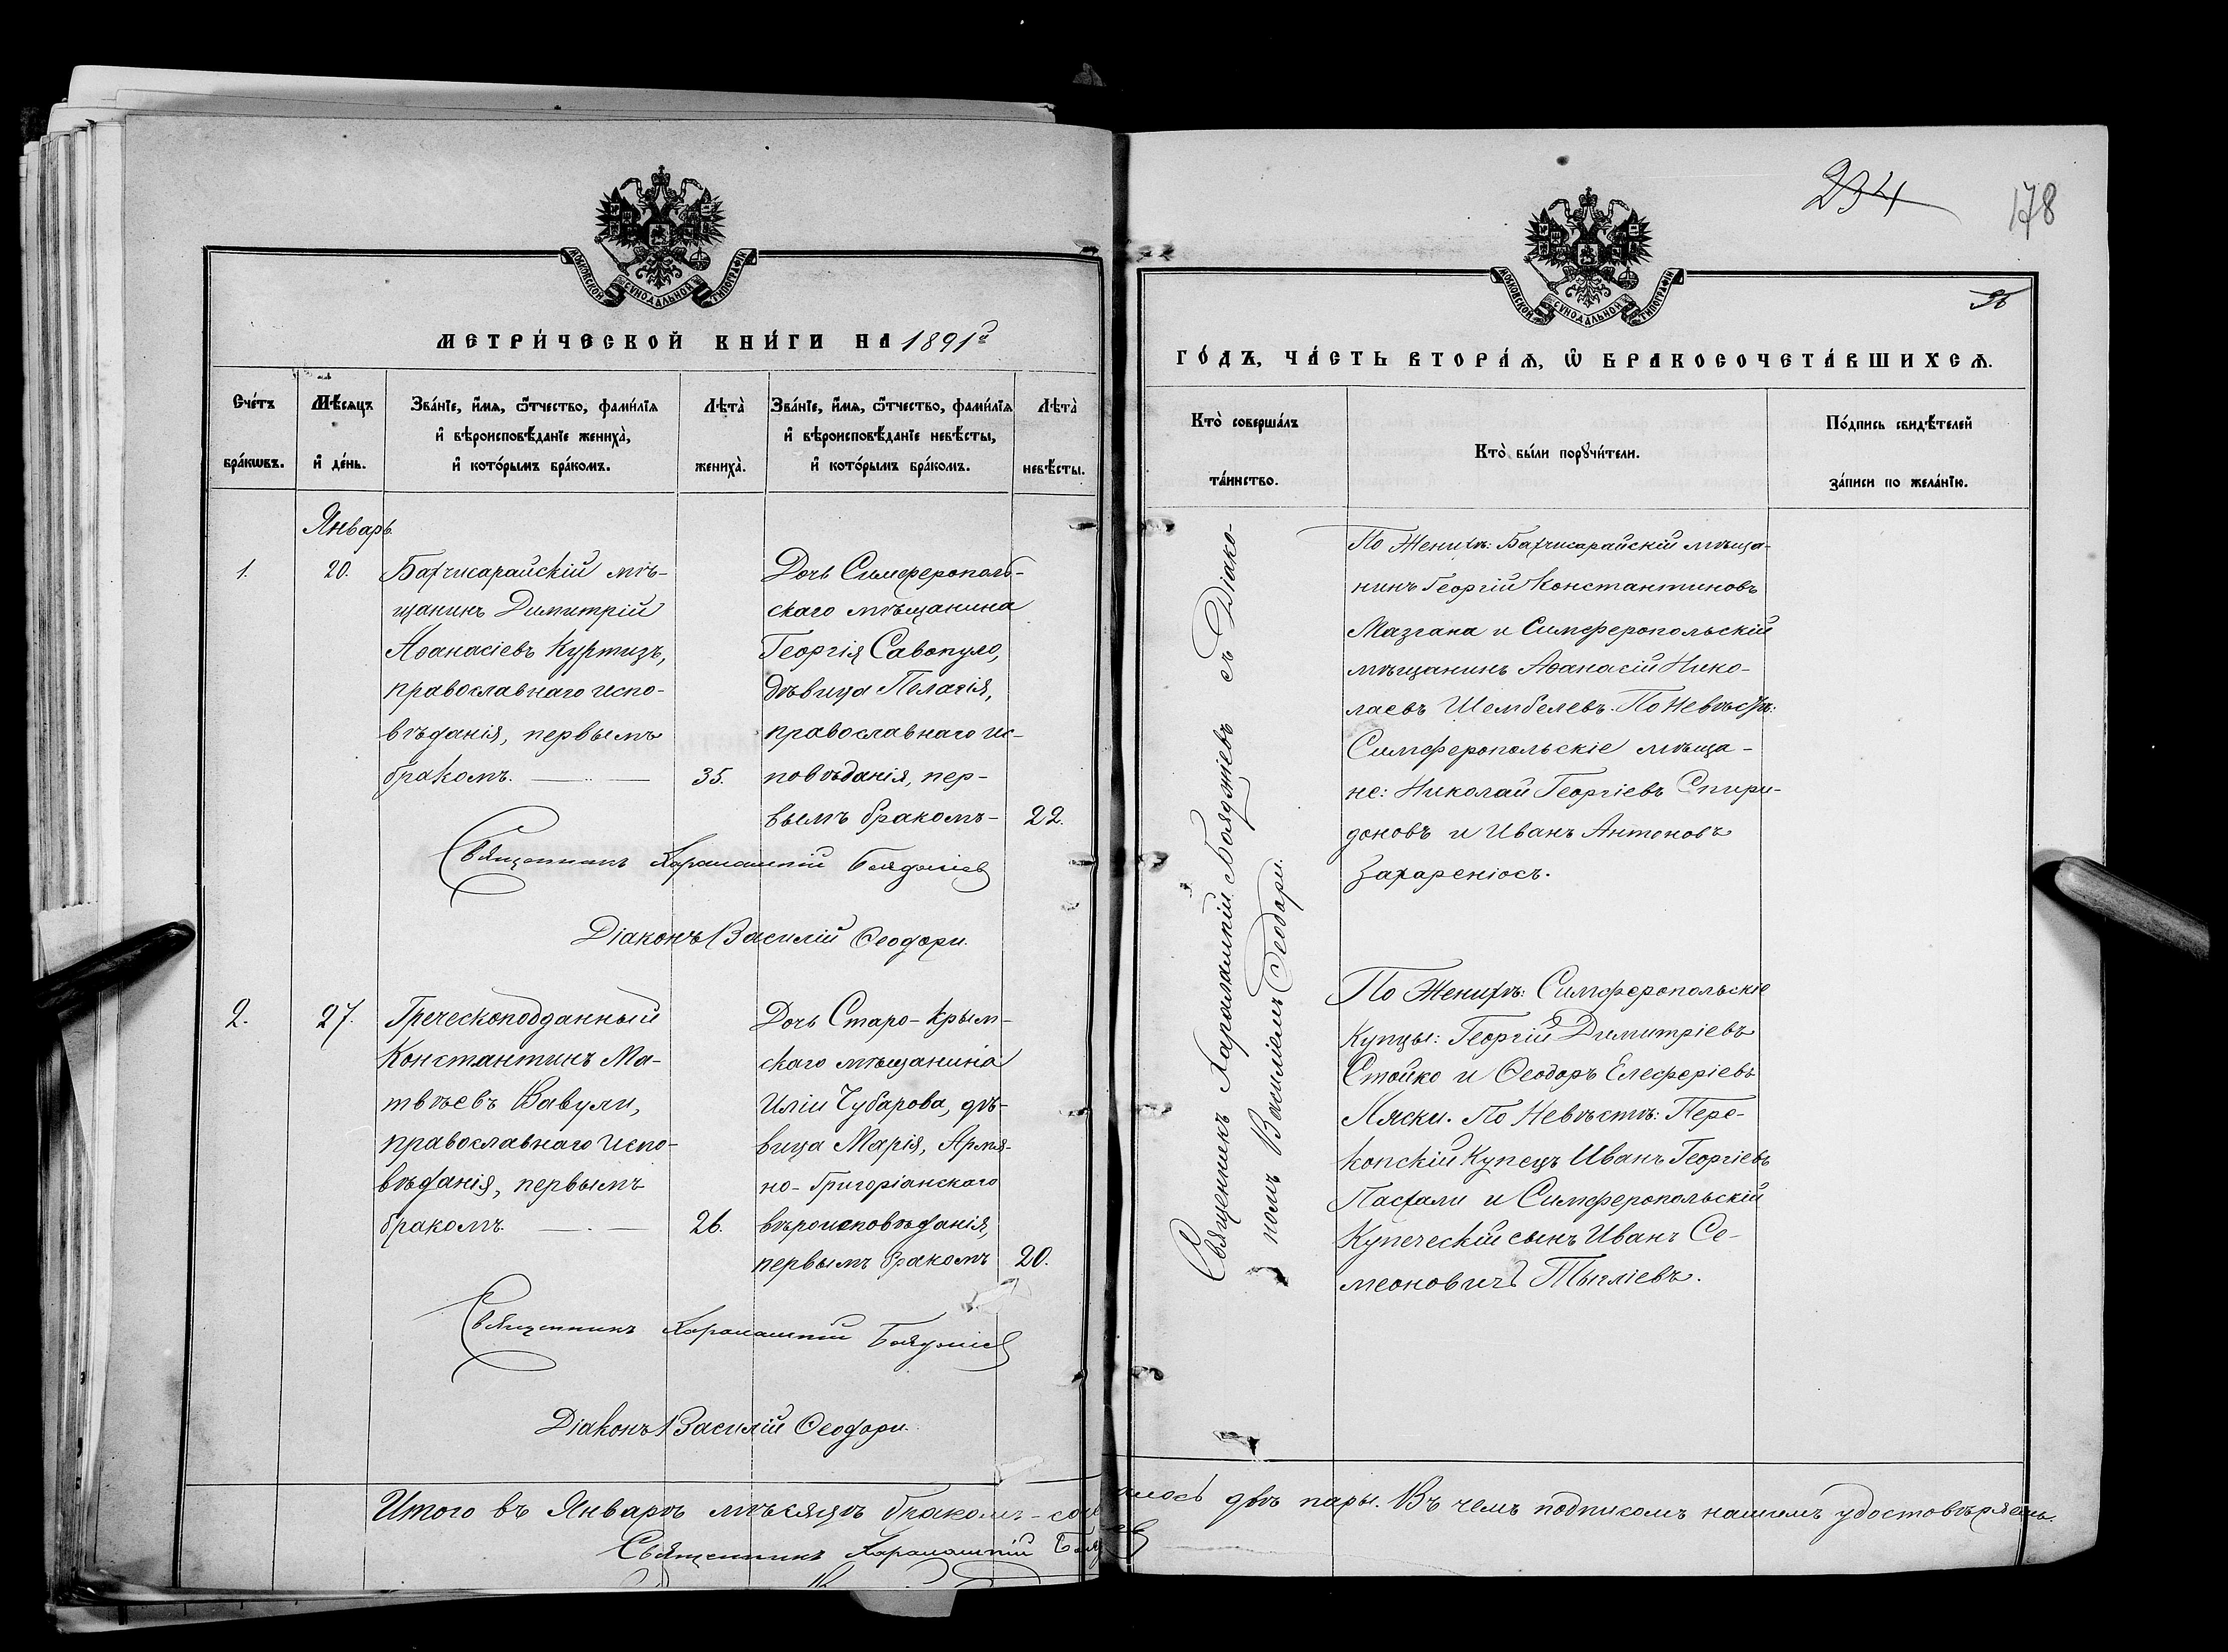 МОСКОВСКОЙ СѴНОДАЛЬНОЙ ТИПОГРАФІИ
МЕТРИ́ЧЕСКОЙ КНИ́ГИ НА 1891й
Сче́тъ бра́кѡвъ.
Мѣ́сяцъ и҆ де́нь.
Зва́нїе, и҆́мѧ, ѻ҆́тчество, фами́лїѧ
и҆ вѣроисповѣ́данїе жениха̀,
и҆ кото́рымъ бра́комъ.
Лѣта̀ жениха̀.
Зва́нїе, и҆́мѧ, ѻ҆́тчество, фами́лїѧ
и҆ вѣроисповѣ́данїе невѣ́сты,
и҆ кото́рымъ бра́комъ.
Лѣта̀ невѣ́сты.
Январь.
1.
20.
Бахчисарайскій мѣ-
щанинъ Димитрій
Аѳанасіевъ Куртизъ,
православнаго испо-
вѣданія, первымъ
бракомъ.
35.
Дочь Симферополь-
скаго мѣщанина
Георгія Савопуло,
дѣвица Пелагія,
православнаго ис-
повѣданія, пер-
вымъ бракомъ-
22.
Священникъ Харалампій Бояджіев
Діаконъ Василій Ѳеодори.
2.
27.
Греческоподданный
Константинъ Ма-
твѣевъ Вавули,
православнаго испо-
вѣданія, первымъ
бракомъ.
26.
Дочь Старо-Крым-
скаго мѣщанина
Иліи Чубарова, дѣ-
вица Марія, Армя-
но-Григоріанскаго
вѣроисповѣданія,
первымъ бракомъ
20.
Священникъ Харалампій Бояджіев
Діаконъ Василій Ѳеодори.
Итого въ Январѣ мѣсяцѣ бракомъ-соче
Священникъ Харалампій Бояд
234
178
МОСКОВСКОЙ СѴНОДАЛЬНОЙ ТИПОГРАФІИ
ГО́ДЪ, ЧА́СТЬ ВТОРА́Ѧ, Ѡ҆ БРАКОСОЧЕТА́ВШИХСѦ.
Кто̀ соверша́лъ
та́инство.
Кто̀ бы́ли порꙋчи́тели.
По́дпись свидѣ́телей
за́писи по жела́нїю.
Священникъ Харалампій Бояджіевъ съ Діако-
номъ Василіемъ Ѳеодори.
По Женихѣ: Бахчисарайскій мѣща-
нинъ Георгій Константиновъ
Мазгана и Симферопольскій
мѣщанинъ Аѳанасій Нико-
лаевъ Шембелевъ. По Невѣстѣ:
Симферопольскіе мѣща-
не: Николай Георгіевъ Спири-
доновъ и Иванъ Антоновъ
Захареніосъ.
По Женихѣ: Симферопольскіе
Купцы: Георгій Димитріевъ
Стойко и Ѳеодоръ Елеферіевъ
Ляски. По Невѣстѣ: Пере-
копскій Купецъ Иванъ Георгіевъ
Пасхали и Симферопольскій
Купеческій сынъ Иванъ Се-
меоновичъ Тыгліевъ.
лось двѣ пары. Въ чемъ подписомъ нашимъ удостовѣряемъ.